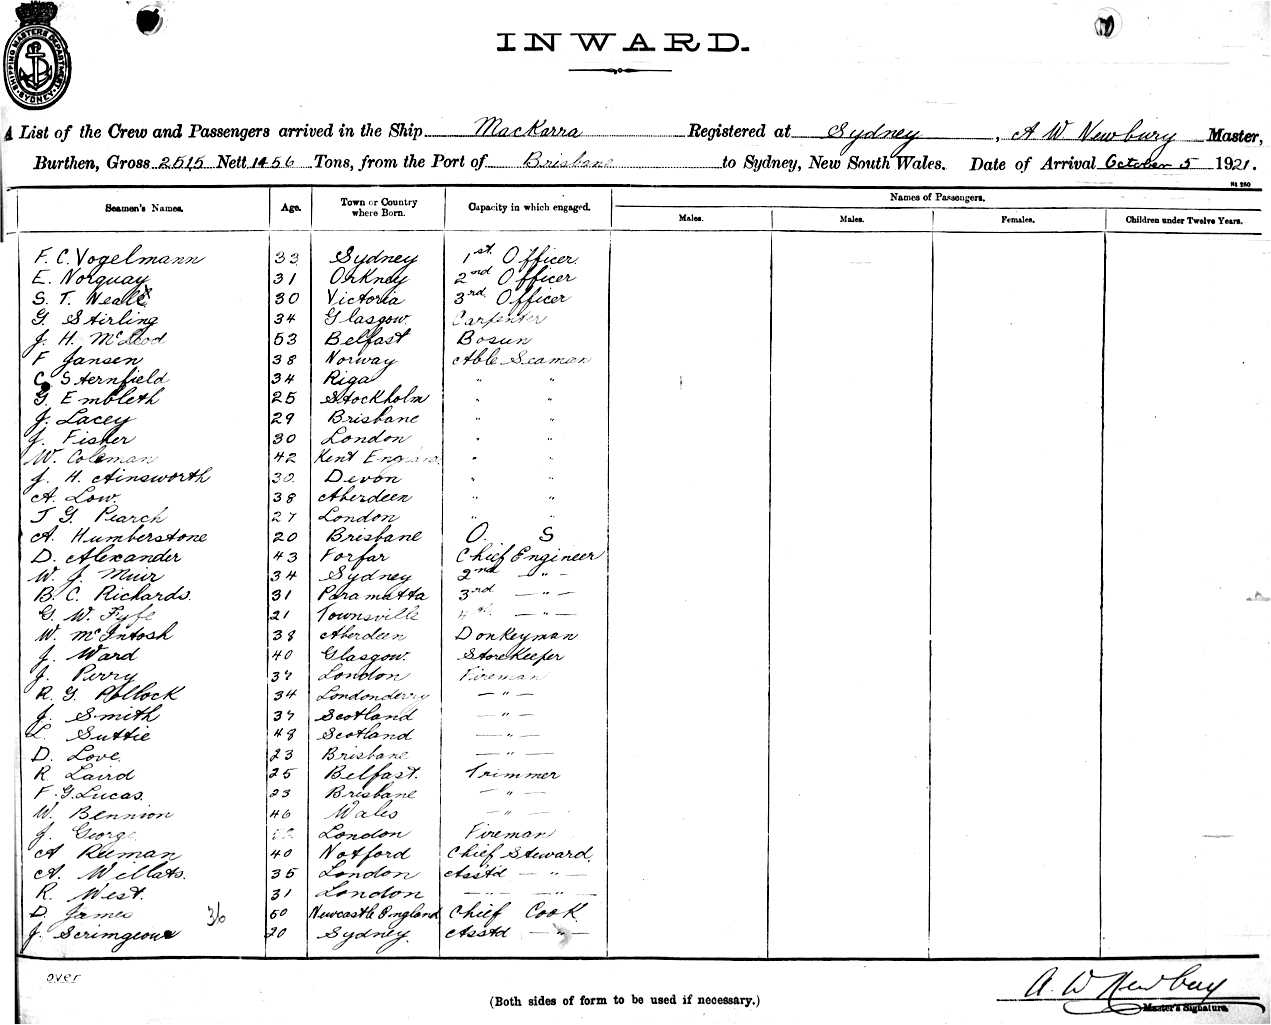 SHIPPING MASTERS DEPARTMENT SYDNEY
INWARD.
A List of the Crew and Passengers arrived in the Ship MacKarra Registered at Sydney, A W Newbury Master,
Burthen, Gross 2515 Nett 1456 Tons, from the Port of Brisbane to Sydney, New South Wales. Date of Arrival October 5 1921.
Seamen's Names. Age. Town or Country where Born. Capacity in which engaged. Names of Passengers.
Males. Males. Females. Children under Twelve Years.
F. C. Vogelmann 33 Sydney 1st. Officer.
E. Norquay 31 Orkney 2nd Officer
S. T. Neale 30 Victoria 3rd Officer
G. Stirling 34 Glasgow. Carpenter
J. H. McLeod 53 Belfast Bosun
F Jansen 38 Norway Able Seaman
C Sternfield 34 Riga " "
G. Embleth 25 Stockholm " "
J. Lacey 29 Brisbane " "
J. Fisher 30 London " "
W. Coleman 42 Kent England " "
J. H. Ainsworth 30 Devon " "
A. Low. 38 Aberdeen " "
J G. Pearch 27 London " "
A. Humberstone 20 Brisbane O. S
D. Alexander 43 Forfar Chief Engineer
W. J. Muir 34 Sydney 2nd — " —
B. C. Rickards. 31 Paramatta 3rd — " —
G. W. Fyfe 21 Townsville 4th. — " —
W. McIntosh 38 Aberdeen Donkeyman
J. Ward 40 Glasgow. StoreKeeper
J. Perry 37 London Fireman
R. G. Pollock 34 Londonderry — " —
J. Smith 37 Scotland — " —
L. Suttie 48 Scotland — " —
D. Love. 23 Brisbane — " —
R Laird 25 Belfast. Trimmer
F. G. Lucas. 23 Brisbane — " —
W. Bennion 46 Wales — " —
J. George London Fireman
A Reeman 40 Notford Chief Steward.
A. Willats. 35 London Asstd — " —
R. West. 31 London — " —
D. James 36 50 Newcastle England Chief Cook
J. Scrimgeour 20 Sydney. Asstd — " —
over
A. W Newbury
(Both sides of form to be used if necessary.)
Master's Signature.